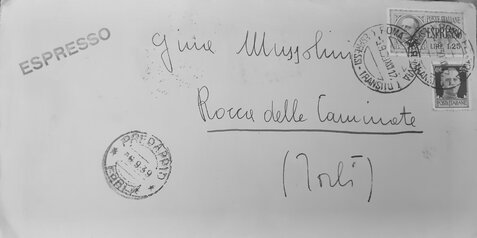 ESPRESSO
Gina Mussolini
Rocca delle Caminate
(Forlì)
PREDAPPIO
6.9.39
FORLI
ROMA
TRANSITO
POSTE ITALIANE
ESPRESSO
LIRE 1,25
POSTE ITALIANE